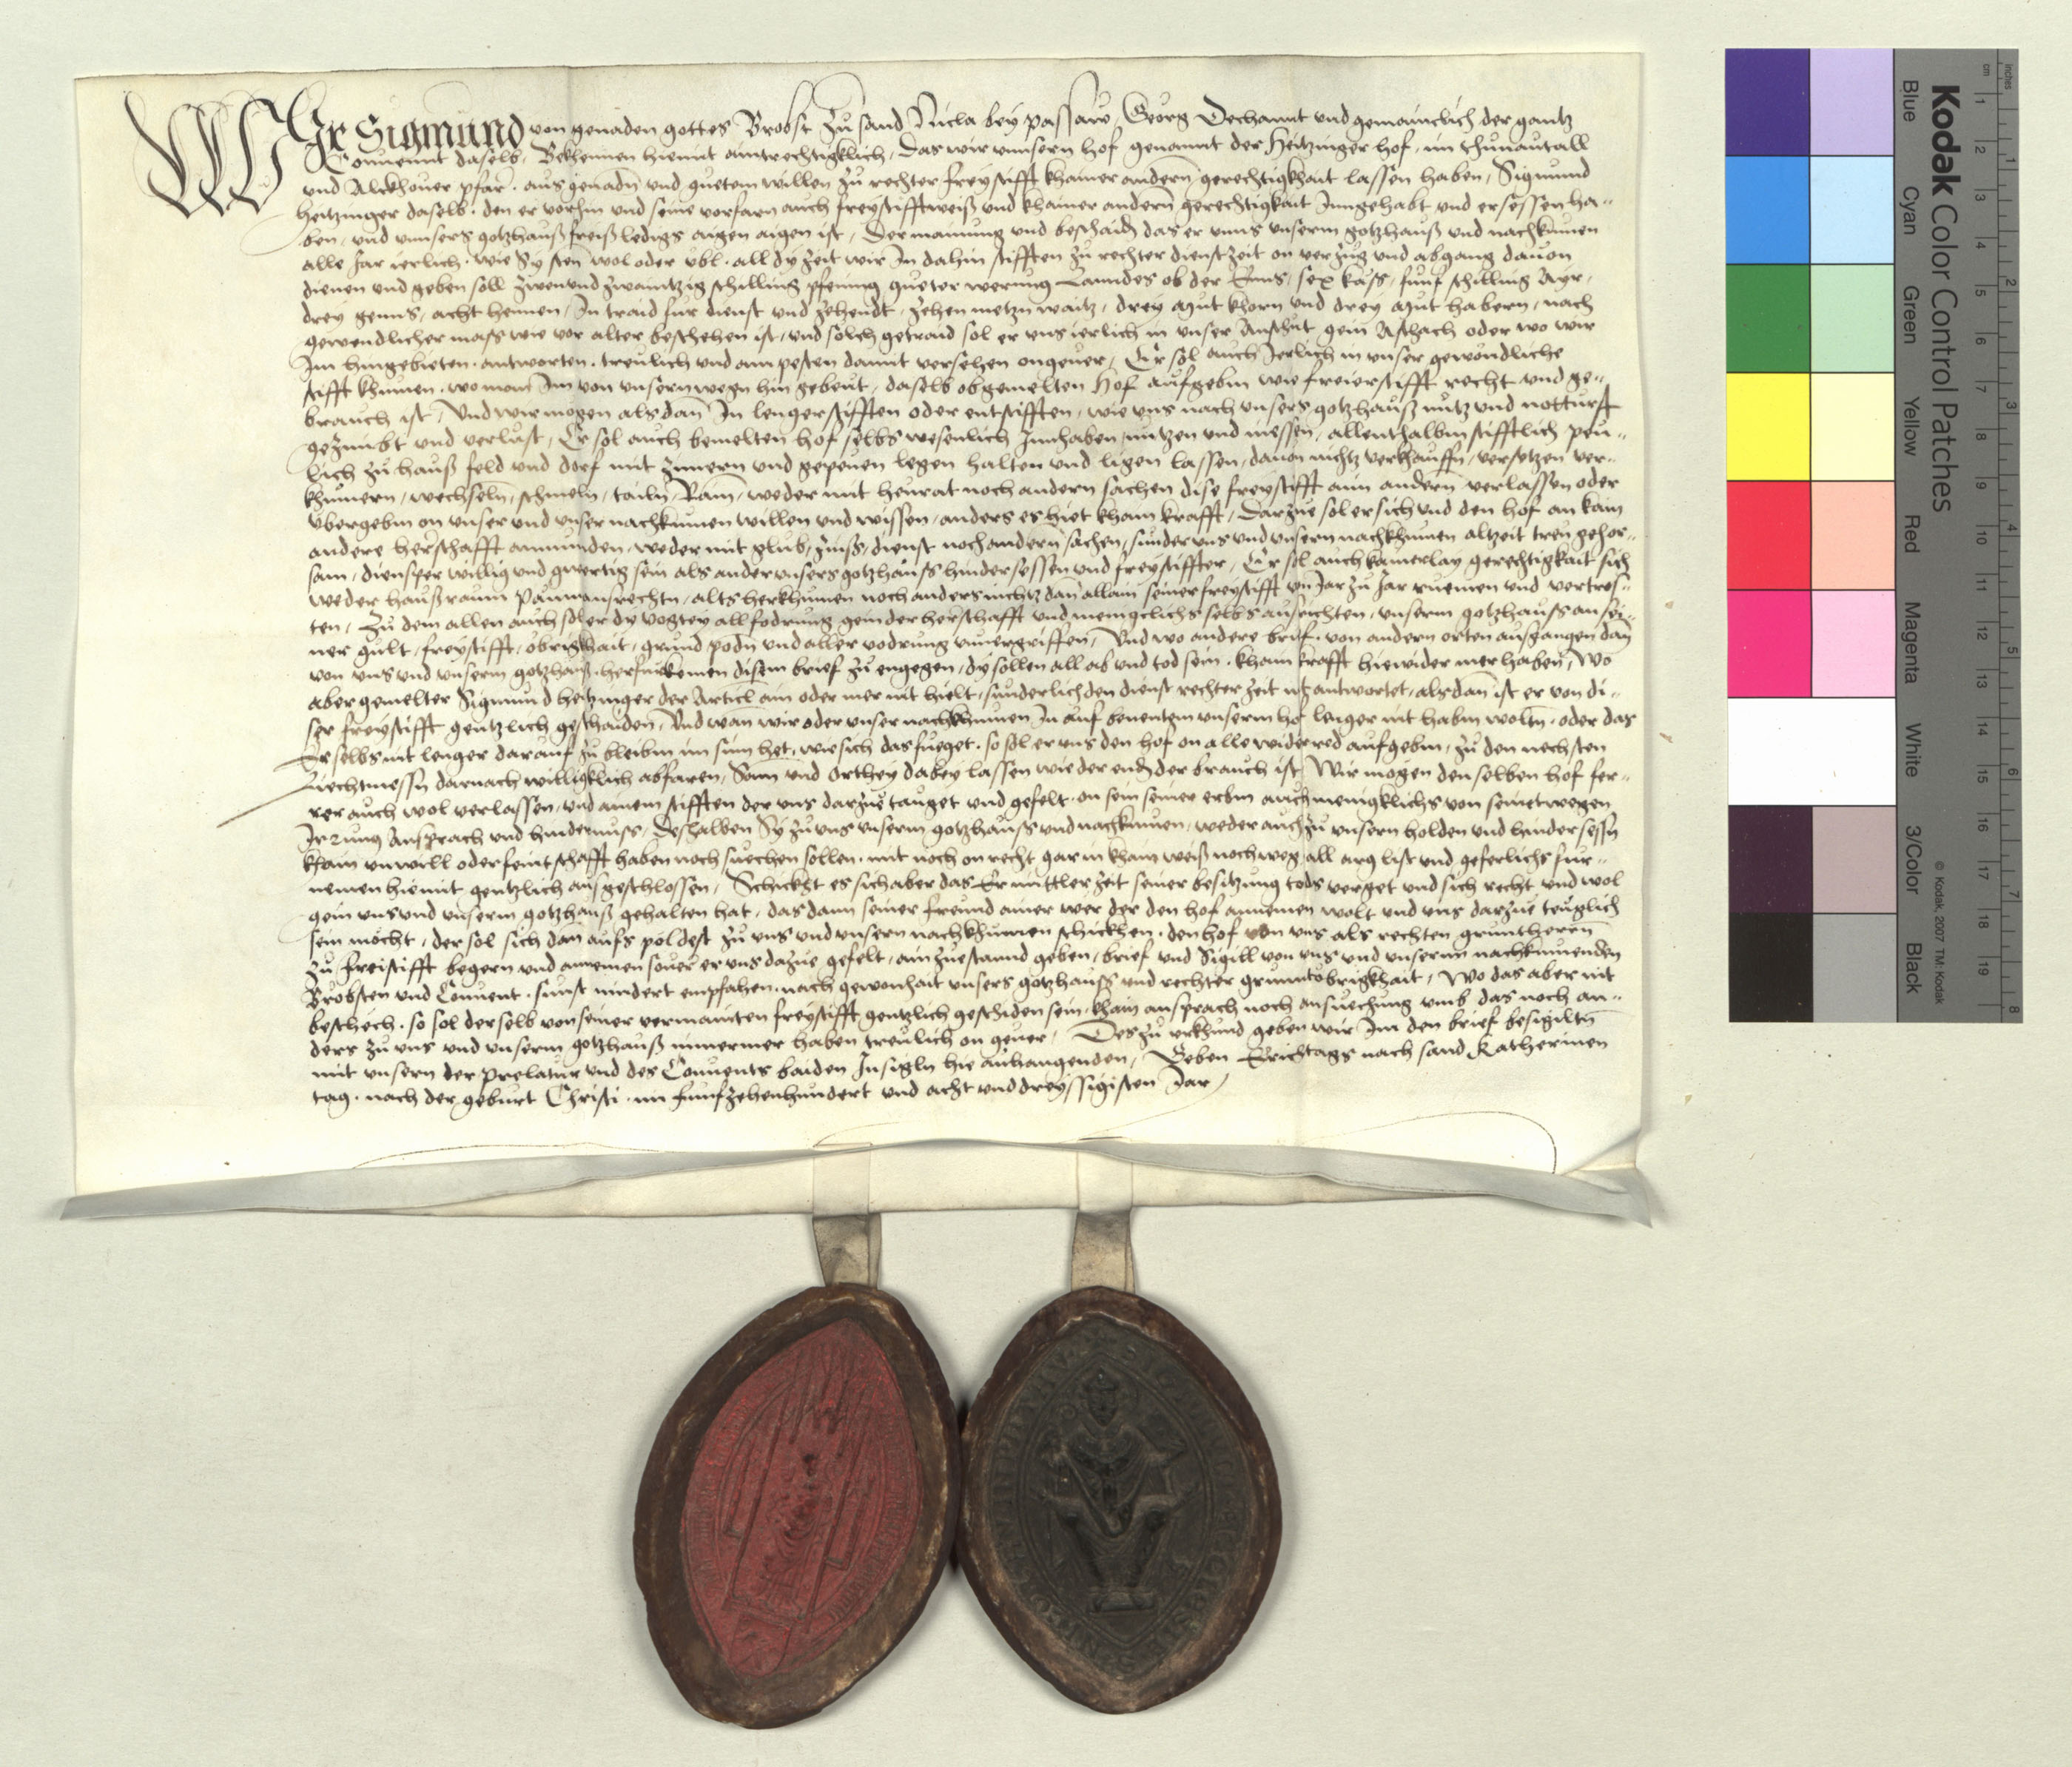 WIr Sigmund von genaden gottes Brobst zu sand Nicla bey passaw, Georg Dechannt und gemainclich der gantz
Conuennt daselbs, Bekhennen hiemit aintrechtigklich, Das wir vnnsern hof genannt der Heitzinger hof, im thunautall
und Alckhouer pfarr. aus genadn und guetem willen zu rechter freystifft khainer andern gerechtigkhait lassen haben, Sigmund
Heitzinger daselbs. den er vorhin und seine vorfarn auch freystifftweiß und khainer andern gerechtigkait Inngehabt und ersessen ha-
ben, und vnnsers gotzhauß freiß ledigs aigen aigen ist, Der mainung und beschaid das er vnns vnserm gotzhauß und nachkumen
alle Jar ierlich. wie Sy sten wol oder vbl. all dy zeit wir In dahin stifften zu rechter dienstzeit on verzug und abgang dauon
dienen und geben soll zwenundzwaintzig schilling pfening gueter werung Lanndes ob der Enns, sex käss, funf schilling Ayr,
drey genns, acht hennen, In traid fur dienst und zehendt, zehen metzn waitz, drey mut khorn und drey mut habern, nach
gewendlicher mass wie vor alter beschehen ist, und solch getraid sol er vns ierlich in vnser Anschut gein Aschach oder wo wir
Im hingebieten. antworten. treulich und am pesten damit versehen ongeuer, Er sol auch Jerlich in vnser gewondliche
stifft khumen. wo man Im von vnsern wegn hin gebeut, daselbs obgemelten Hof aufgebm wie freierstifft recht und ge-
brauch ist, Und wir mögen alsdan In lenger stifften oder entstifften, wie vns nach vnsers gotzhauß nutz und notturft
gezimbt und verlust, Er sol auch bemelten hof selbs wesenlich Innhaben, nutzen und niessen, allenthalbm stifftlich peu-
lich zu hauß feld und dorf mit zimern und gepeuen legen halten und ligen lassen, dauon nichtz verkhauffn, versetzen ver-
khumern, wechseln, schmeln, tailn, Ramn, weder mit heurat noch andern sachen dise freystifft ainn andern verlassen oder
vbergebm on vnser und vnser nachkumen willen und wissen, anders es hiet kham krafft, Darzue sol er sich und den hof an kain
andere herschafft annimden, weder mit glub, zinss, dienst noch andern sachen, sunder vns und vnsern nachkhumen altzeit treu gehor-
sam, dienstper willig und gwertig sein als ander vnsers gotzhauss hindersessen und freystiffter, Er sol auch kainerlay gerechtigkait sich
weder haußraum paumansrechtn, alts herkhumen noch anders nichtz dan allain seiner freystifft von Jar zu Jar ruemen und vertros-
ten, Zu dem allen auch sol er dy vogtey all fodrung gein der herschafft und menigclichs selbs ausrichten, vnserm gotzhauss an sei-
ner gult, freystifft, obrigkhait, grund podn und aller vodrung vnuergriffen, Und wo andere brief. von andern orten ausgangen dan
von vns und vnserm gotzhauß. herfurkemen disem brief zu engegen, dy sollen all ab und tod sein. kham krafft hiewider mer haben, Wo
aber gemelter Sigmund Heitzinger der Articl ain oder mer nit hielt, sunderlich den dienst rechter zeit nit antwortet, alsdan ist er von di-
ser freystifft gentzlich geschaiden, Und wan wir oder vnser nachkhumen In auf benentem vnserm hof lenger nit habm woltn. oder das
Er selbs nit lenger darauf zu bleibm im sinn het, wie sich das fueget. so sol er vns den hof on alle widerred aufgebm, zu den nechsten
Liechtmessn darnach willigklich abfaren, Sam und Orthey dabey lassen wie der endt der brauch ist, Wir mogen denselben hof fer-
rer auch wol verlassen, und ainem stifften der vns darzue tauget und gefelt. on sein seiner erbm auch menigklichs von seinetwegen
Irrung Ansprach und hindernuss, Deshalben Sy zu vns vnserm gotzhauß und nachkumen, weder auch zu vnsern holden und hindersessn
kham vnwill oder feintschafft haben noch suechen sollen. mit noch on recht gar in kham weiß noch weg all arg list und geferlichs fur-
nemen hiemit gentzlich ausgeschlossen, Schickht es sich aber das Er mittler zeit seiner besitzung tods verget und sich recht und wol
gein vns und vnserm gotzhauß gehalten hat, das dann seiner freund ainer wer der den hof annemen wolt und vns darzue teuglich
sein möcht, der sol sich dan aufs poldest zu vns und vnsern nachkhumen schickhen. den hof von vns als rechten gruntherrn
zu freistifft begern und annemen souer er vns dazue gefelt, ain zuestannd geben, brief und Sigill von vns und vnsern nachkumenden
Brobsten und Conuent. sunst nindert empfahen. nach gewonhait vnsers gotzhauss und rechter gruntobrigkhait, Wo das aber nit
beschech. so sol derselb von seiner vermainten freystifft gentzlich geschiden sein, kham ansprach noch ansuechung vmb das noch an-
ders zu vns und vnserm gotzhauß nimermer haben treulich on geuer, Des zu vrkhund geben wir Im den brief besigiltn
mit vnsern der prelatur und des Conuents baiden Insigln hie anhangenden, Geben Erichtags nach sand Katherinen
tag. nach der geburt Christi. im funfzehenhundert und acht und dreyssigisten Jar,
Kodak Color Control Patches
Blue Cyan Green Yellow Red Magenta White 3/Color Black
© Kodak, 2007 TM: Kodak
cm 1 2 3 4 5 6 7 8 9 10 11 12 13 14 15 16 17 18 19
inches 1 2 3 4 5 6 7 8